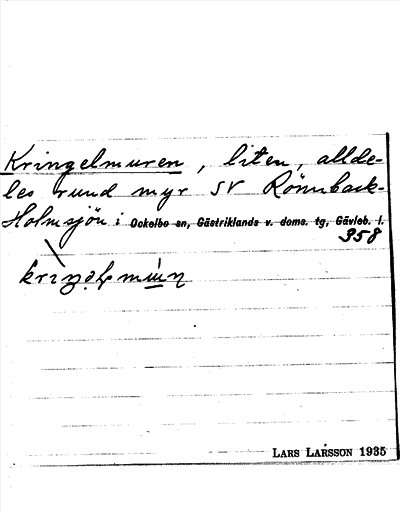 Kringelmuren, liten, allde-
les rund myr SV Rönnback-
Holmsjön i Ockelbo sn, Gästriklands v. doms. tg, Gävleb. l.
358
LARS LARSSON 1935